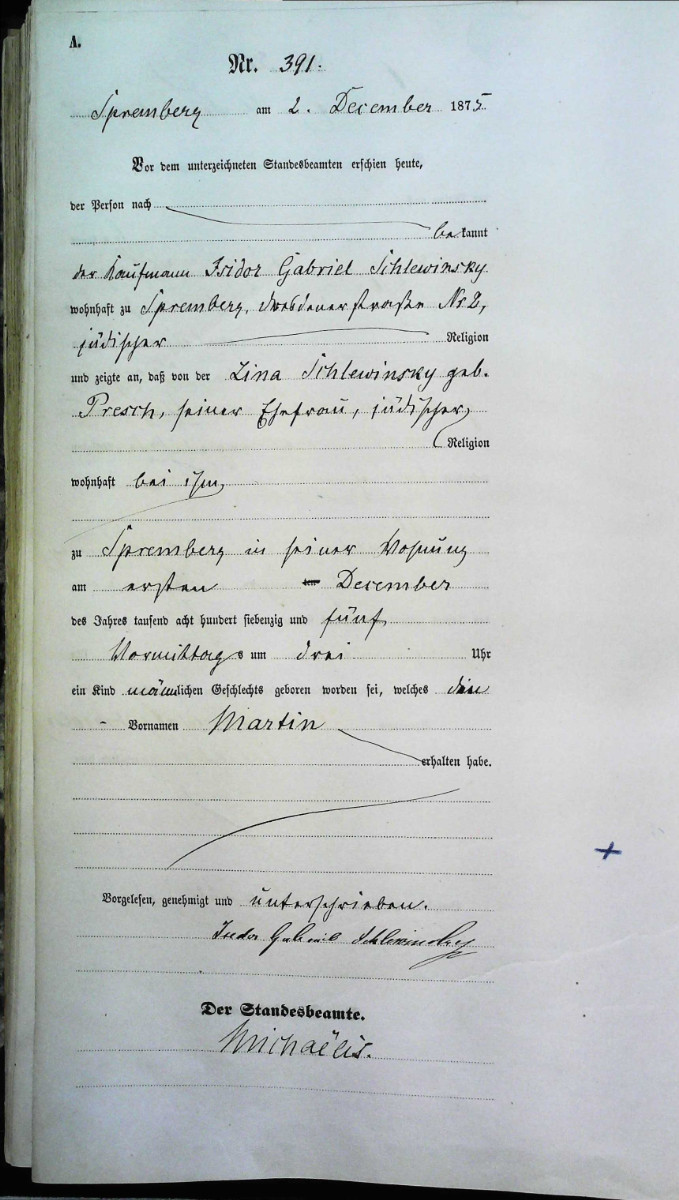 A.
Nr. 391.
Spremberg am 2. December 1875
Vor dem unterzeichneten Standesbeamten erschien heute,
der Person nach
bekannt
der Kaufmann Isidor Gabriel Schlewinsky
wohnhaft zu Spremberg, Dresdener straße Nr 2,
jüdischer Religion
und zeigte an, daß von der Lina Schlewinsky geb.
Presch, seiner Ehefrau, jüdischer
Religion
wohnhaft bei ihm,
zu Spremberg in seiner Wohnung
am ersten ten December
des Jahres tausend acht hundert siebenzig und fünf
Vormittags um drei Uhr
ein Kind männlichen Geschlechts geboren worden sei, welches den
- Vornamen Martin
erhalten habe.
Vorgelesen, genehmigt und unterschrieben.
Isidor Gabriel Schlewinsky
Der Standesbeamte.
Michaëlis.